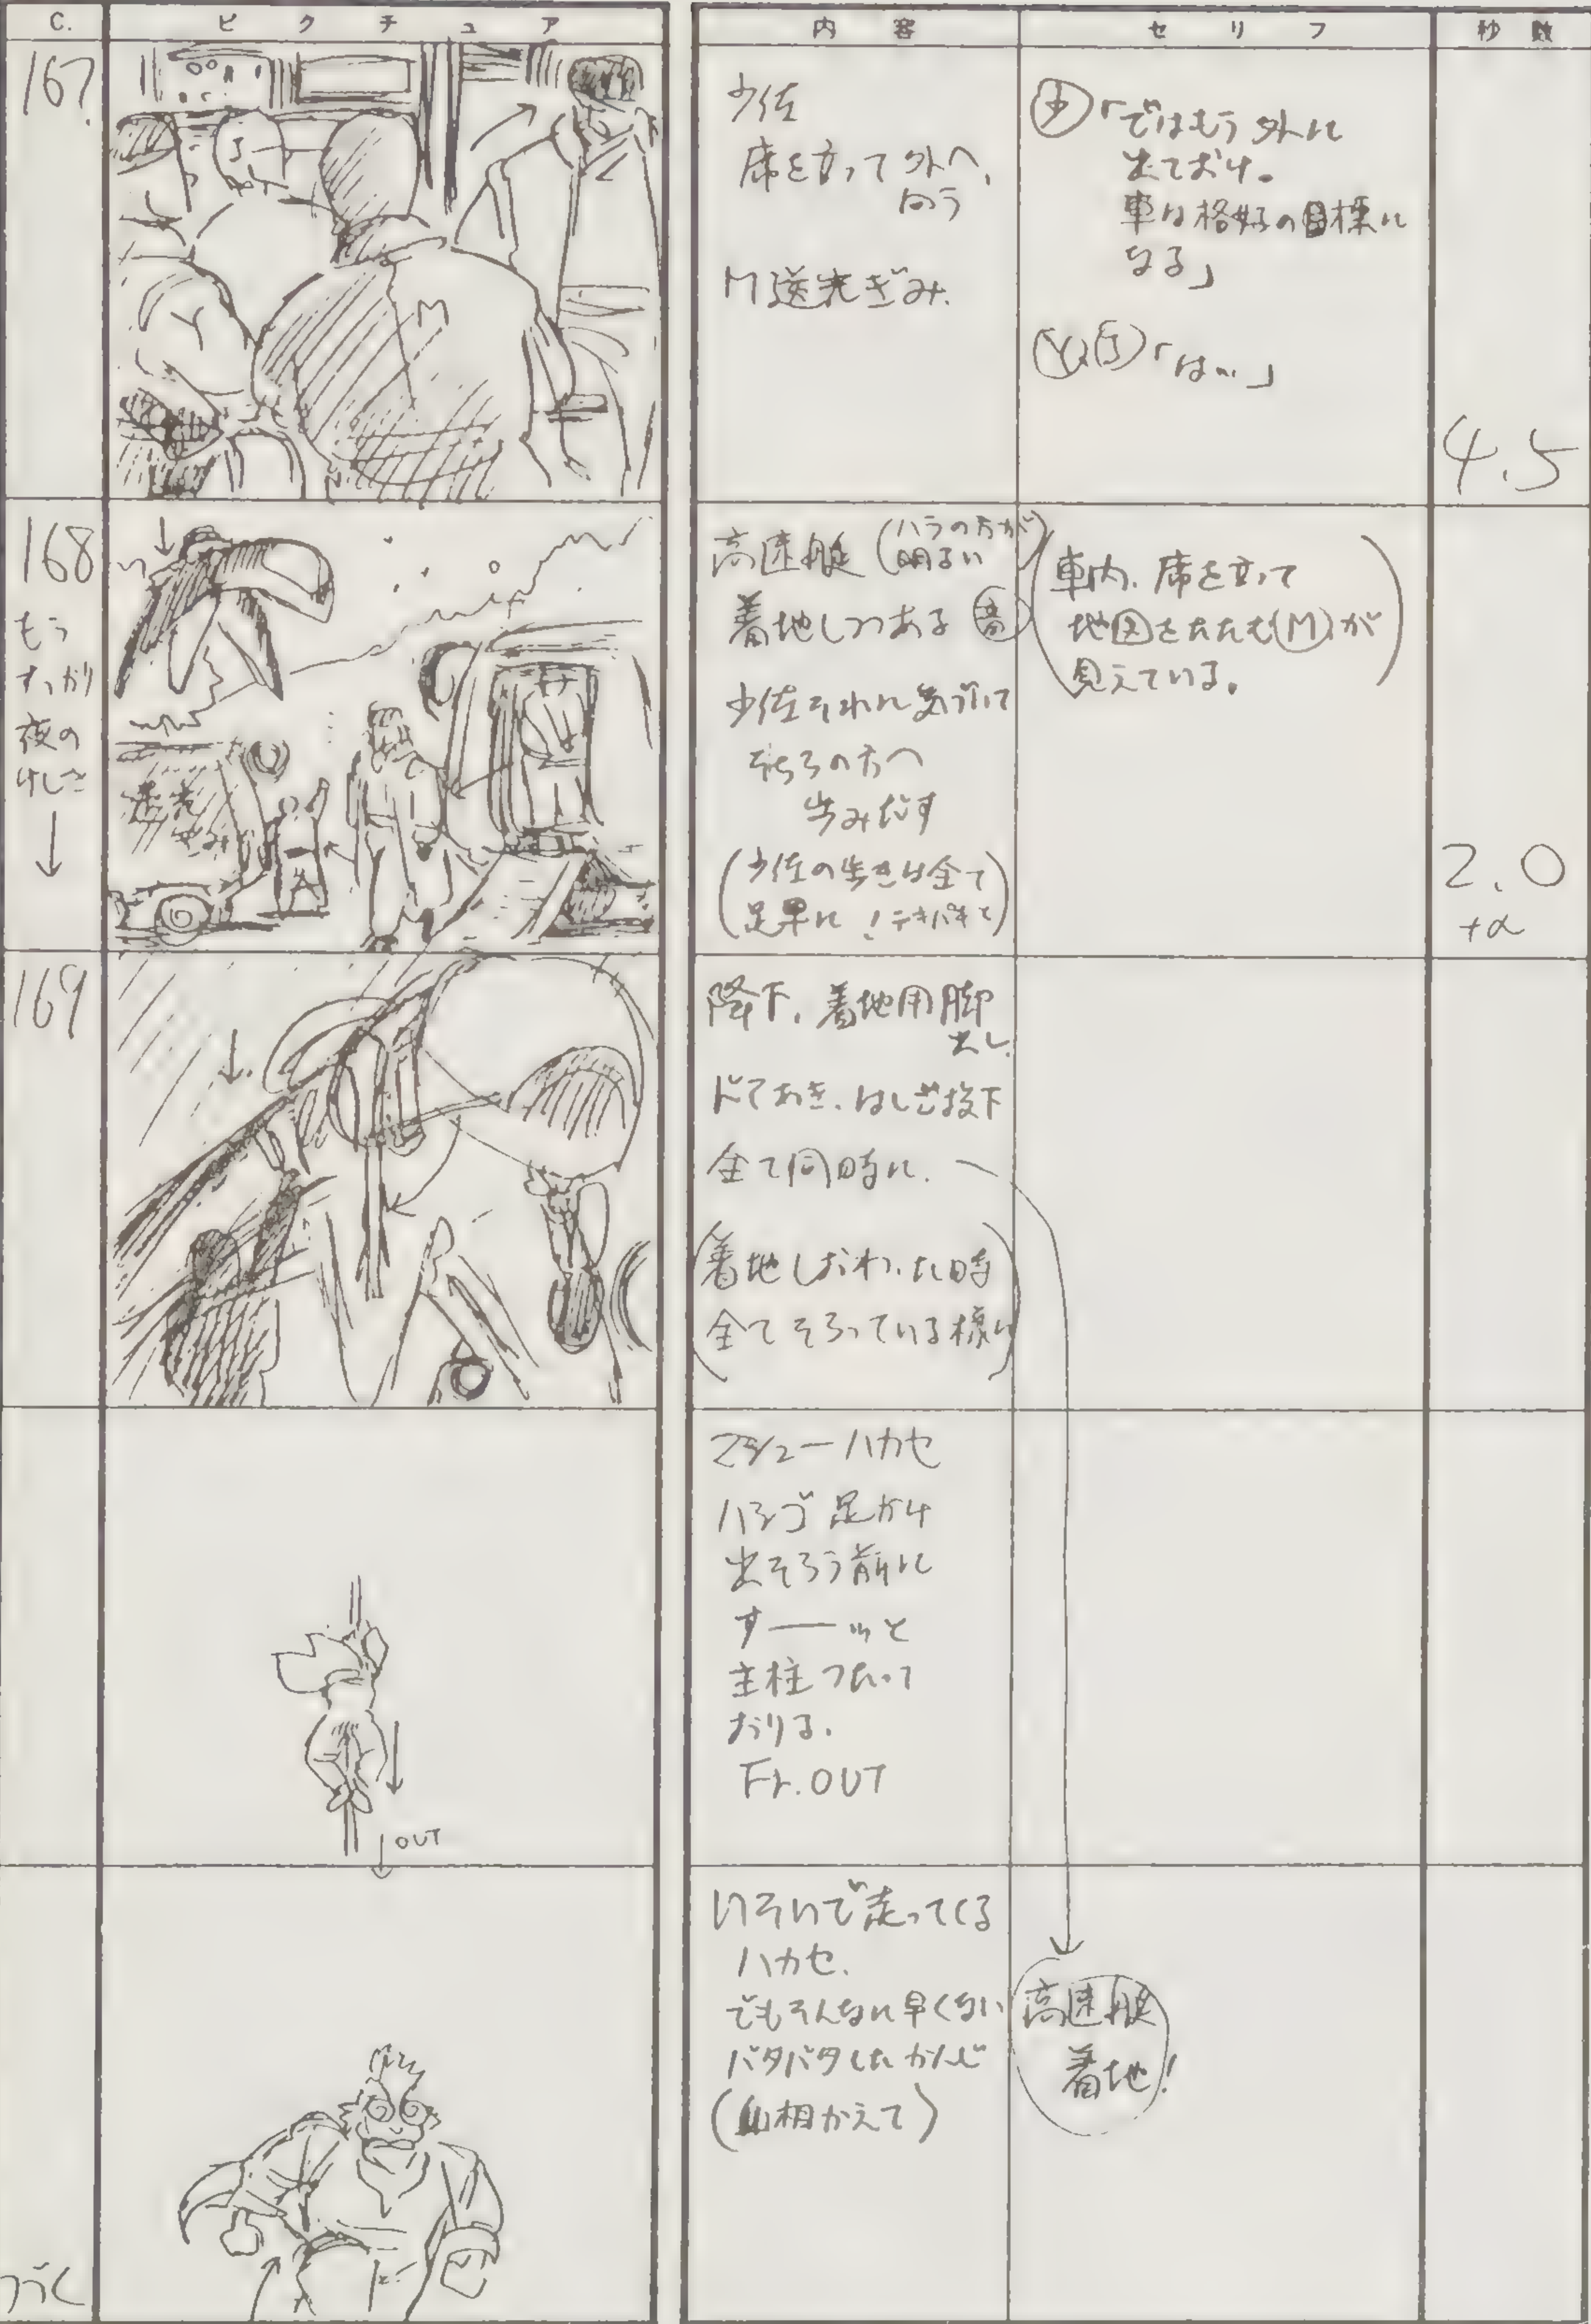 C.
ピクチュア
内容
セリフ
秒数
167.
J
Y
M
少佐
席を立って外へ、
向う
M逆光ぎみ.
少「ではもう外に
出ておけ。
車は格好の目標に
なる」
Y,J「は…」
4.5
168
もう
すっかり
夜の
けしき
↓
逆光
ぎみ
高速艇(ハラの方が
明るい
着地しつつある 音
少佐それに気づいて
そちらの方へ
歩みだす
(少佐の歩きは全て
足早に!テキパキと)
(車内.席を立って
地図をたたむMが
見えている。)
2.0
+α
169
降下.着地用脚
出し.
ドアあき.はしご投下
全て同時に.
(着地しおわった時
全てそろっている様に)
マシューハカセ
ハシゴ足かけ
出そろう前に
す――ッと
主柱つたって
おりる.
Fr.OUT
OUT
いそいで走ってくる
ハカセ.
でもそんなに早くない
バタバタしたかんじ
相かえて)
高速艇
着地!
つづく